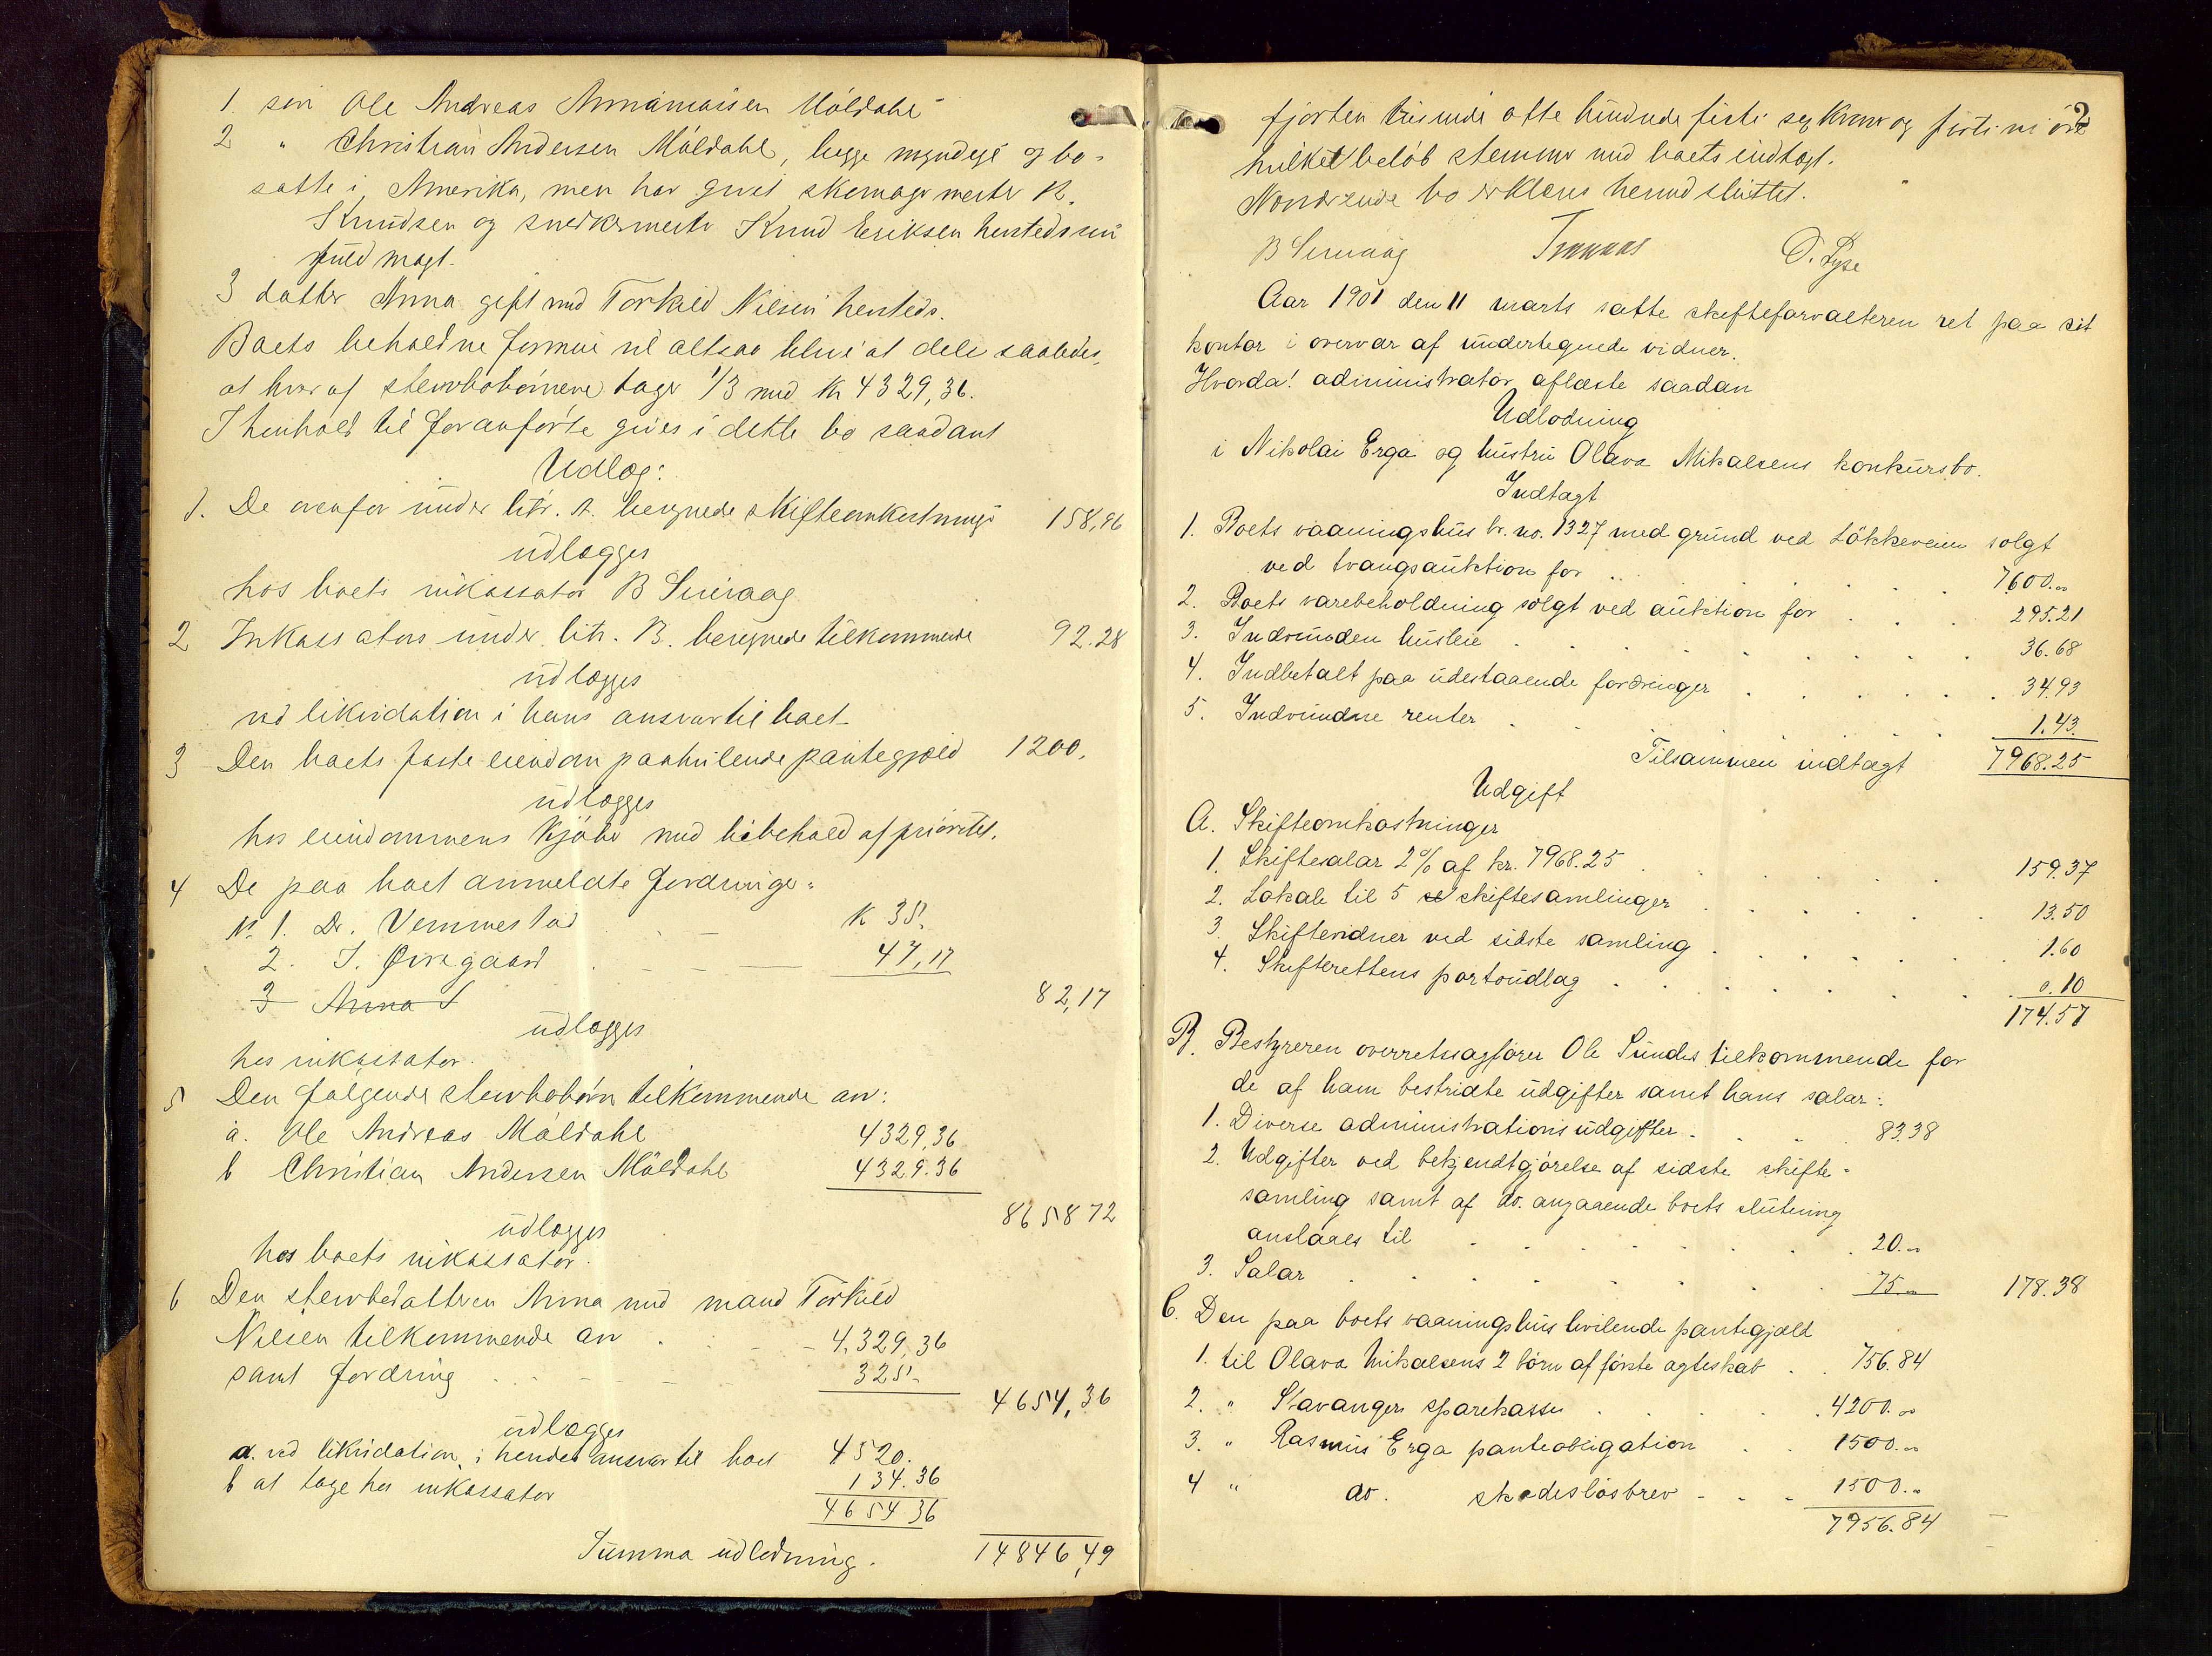 1. søn Ole Andreas Annamaisen Mõldahl
2 " Christian Andersen Mõldahl, begge myndige og bo-
satte i Amerika, men har givet skomagermester K.
Knudsen og snedkermester Knud Eriksen hersteds sin
fuldmagt.
3 datter Anna gift med Torkild Nilsen hersteds.
Boets beholdne formue vil altsaa blive at dele saaledes,
at hver af stervbobørnene tager 1/3 med Kr 4329,36.
I henhold til foranførte gives i dette bo saadant
Udlæg:
1. De ovenfor under litr. A. beregnede skifteomkostninger 158,96
udlægges
hos boets inkassator B Sunraag
2 Inkassators under litr. B. beregnede tilkommende 92.28
udlægges
ved likvidation i hans ansvar til boet
3 Den boets faste eiendom paahvilende pantegjæld 1200,
udlægges
hos eiendommens kjøber med bibehold af prioritet.
4 De paa boet anmeldte fordringer:
N. 1. Dr. Vemmestad K 35.
2. J. Øvregaard 47,17
3 Anna S 82,17
udlægges
hos inkassator.
5 Den følgende stervbobørn tilkommende arv:
a. Ole Andreas Mõldahl 4329,36
b Christian Andersen Mõldahl 4329.36
8658 72
udlægges
hos boets inkassator.
6 Den stervbodatteren Anna med mand Torkild
Nilsen tilkommende arv 4.329,36
samt fordring 325.-
4654,36
udlægges
a. ved likvidation i hendes ansvar til boet 4520.
b at tage hos inkassator 134.36
4654 36
Summa udlodning. 14846,49
2
fjorten tusinde otte hundrede firti sex kroner og firti ni øre
hvilket beløb stemmer med boets indtægt.
Nærværende bo erklæres hermed sluttet.
B Sunraag O. Lyse
Aar 1901 den 11 marts satte skifteforvalteren ret paa sit
kontor i overvær af undertegnede vidner.
Hvorda! administrator aflæste saadan
Udlodning
i Nikolai Erga og hustru Olava Mikalsens konkursbo.
Indtægt
1. Boets vaaningshus br. no. 1327 med grund ved Løkkeveien solgt
ved tvangsauktion for 7600.00
2. Boets varebeholdning solgt ved auktion for 295.21
3. Indvunden husleie 36.68
4. Indbetalt paa udestaaende fordringer 34.93
5. Indvundne renter 1.43
Tilsammen indtægt 7968.25
Udgift
A. Skifteomkostninger
1. Skiftesalar 2% af kr. 7968.25 159.37
2. Lokale til 5 skiftesamlinger 13.50
3. Skiftevidner ved sidste samling 1.60
4. Skifterettens portoudlæg 0.10
174.57
B. Bestyreren overretssagfører Ole Sundes tilkommende for
de af ham bestridte udgifter samt hans salar:
1. Diverse administrationsudgifter 83.38
2. Udgifter ved bekjendtgjørelse af sidste skifte-
samling samt af do. angaaende boets slutning
anslaaes til 20.00
3. Salar 75.00 178.38
C. Den paa boets vaaningshus hvilende pantegjæld
1. til Olava Mikalsens 2 børn af første ægteskab 756.84
2. " Stavanger sparekasse 4200.00
3. " Rasmus Erga panteobligation 1500.00
4 " do. skadesløsbrev 1500.00
7956.84